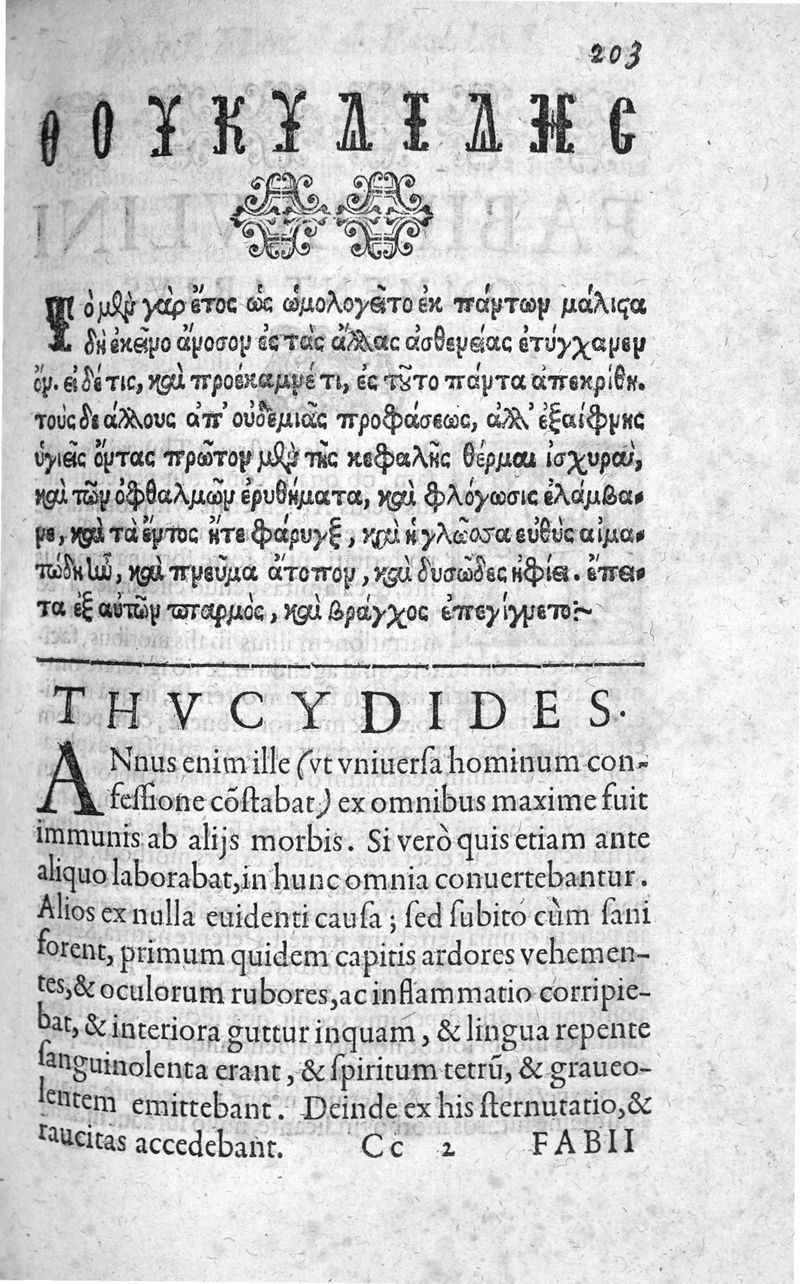 203
ΘΟΥΚΥΔΙΔΗΣ
Τὸ μὲν γὰρ ἔτος ὡς ὡμολογεῖτο ἐκ πάντων μάλιστα
δὴ ἐκεῖνο ἄνοσον ἐς τὰς ἄλλας ἀσθενείας ἐτύγχανεν
ὄν. εἰ δέ τις, καὶ προέκαμνέ τι, ἐς τοῦτο πάντα ἀπεκρίθη.
τοὺς δε ἄλλους ἀπ' οὐδεμιᾶς προφάσεως, ἀλλ' ἐξαίφνης
ὑγιεῖς ὄντας πρῶτον μὲν τῆς κεφαλῆς θέρμαι ἰσχυραὶ,
καὶ τῶν ὀφθαλμῶν ἐρυθήματα, καὶ φλόγωσις ἐλάμβα-
νε, καὶ τὰ ἐντος ἥτε φάρυγξ, καὶ ἡ γλῶσσα εὐθὺς αἱμα-
τώδη ἦν, καὶ πνεῦμα ἄτοπον, καὶ δυσῶδες ἠφίει. ἔπει-
τα ἐξ αὐτῶν πταρμὸς, καὶ βράγχος ἐπεγίγνετο:~
THVCYDIDES.
ANnus enim ille (vt vniuersa hominum con-
fessione cõstabat) ex omnibus maxime fuit
immunis ab alijs morbis. Si verò quis etiam ante
aliquo laborabat, in hunc omnia conuertebantur.
Alios ex nulla euidenti causa; sed subito cùm sani
forent, primum quidem capitis ardores vehemen-
tes, & oculorum rubores, ac inflammatio corripie-
bat, & interiora guttur inquam, & lingua repente
sanguinolenta erant, & spiritum tetrũ, & graueo-
lentem emittebant. Deinde ex his sternutatio, &
raucitas accedebant. Cc 2 FABII